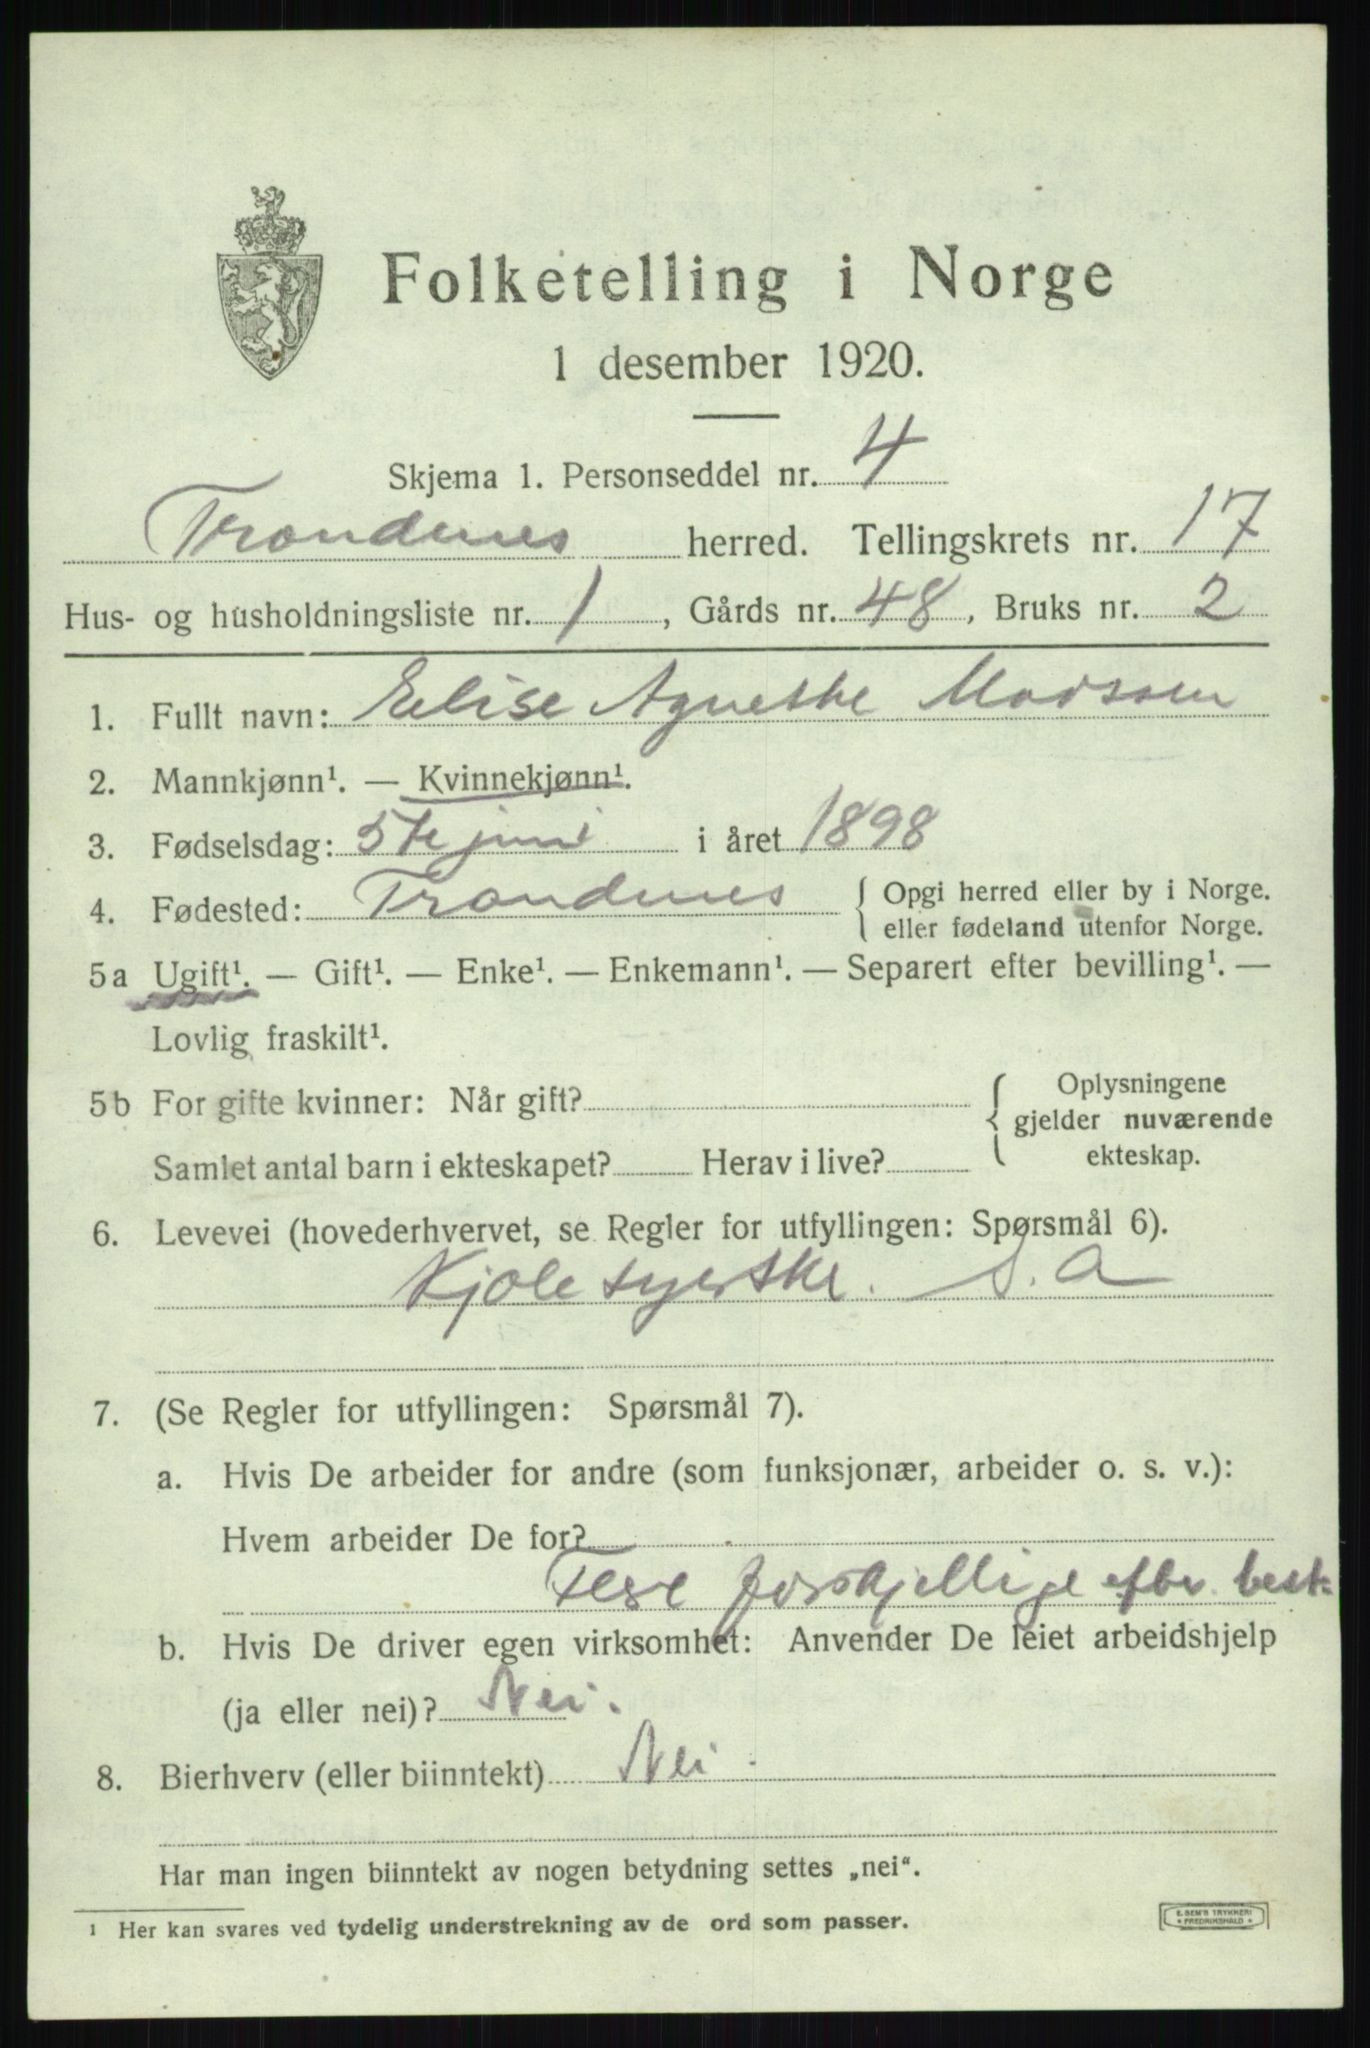 Folketelling i Norge
1 desember 1920.
Skjema 1. Personseddel nr. 4
Trondenes herred. Tellingskrets nr. 17
Hus- og husholdningsliste nr. 1, Gårds nr. 48, Bruks nr. 2
1. Fullt navn: Elise Agnethe
2. Mannkjønn¹. — Kvinnekjønn¹.
3. Fødselsdag: 5te juni i året 1898
4. Fødested: Trondenes { Opgi herred eller by i Norge.
eller fødeland utenfor Norge.
5a Ugift¹. — Gift¹. — Enke¹. — Enkemann¹. — Separert efter bevilling¹. —
Lovlig fraskilt¹.
5b For gifte kvinner: Når gift? { Oplysningene
gjelder nuværende
Samlet antal barn i ekteskapet? Herav i live? ekteskap.
6. Levevei (hovederhvervet, se Regler for utfyllingen: Spørsmål 6).
Kjolesyerske. S. A
7. (Se Regler for utfyllingen: Spørsmål 7).
a. Hvis De arbeider for andre (som funksjonær, arbeider o. s. v.):
Hvem arbeider De for?
forskjellige efter best.
b. Hvis De driver egen virksomhet: Anvender De leiet arbeidshjelp
(ja eller nei)? Nei.
8. Bierhverv (eller biinntekt) Nei
Har man ingen biinntekt av nogen betydning settes „nei“.
¹ Her kan svares ved tydelig understrekning av de ord som passer.
E. SEM'S TRYKKERI
FREDRIKSHALD